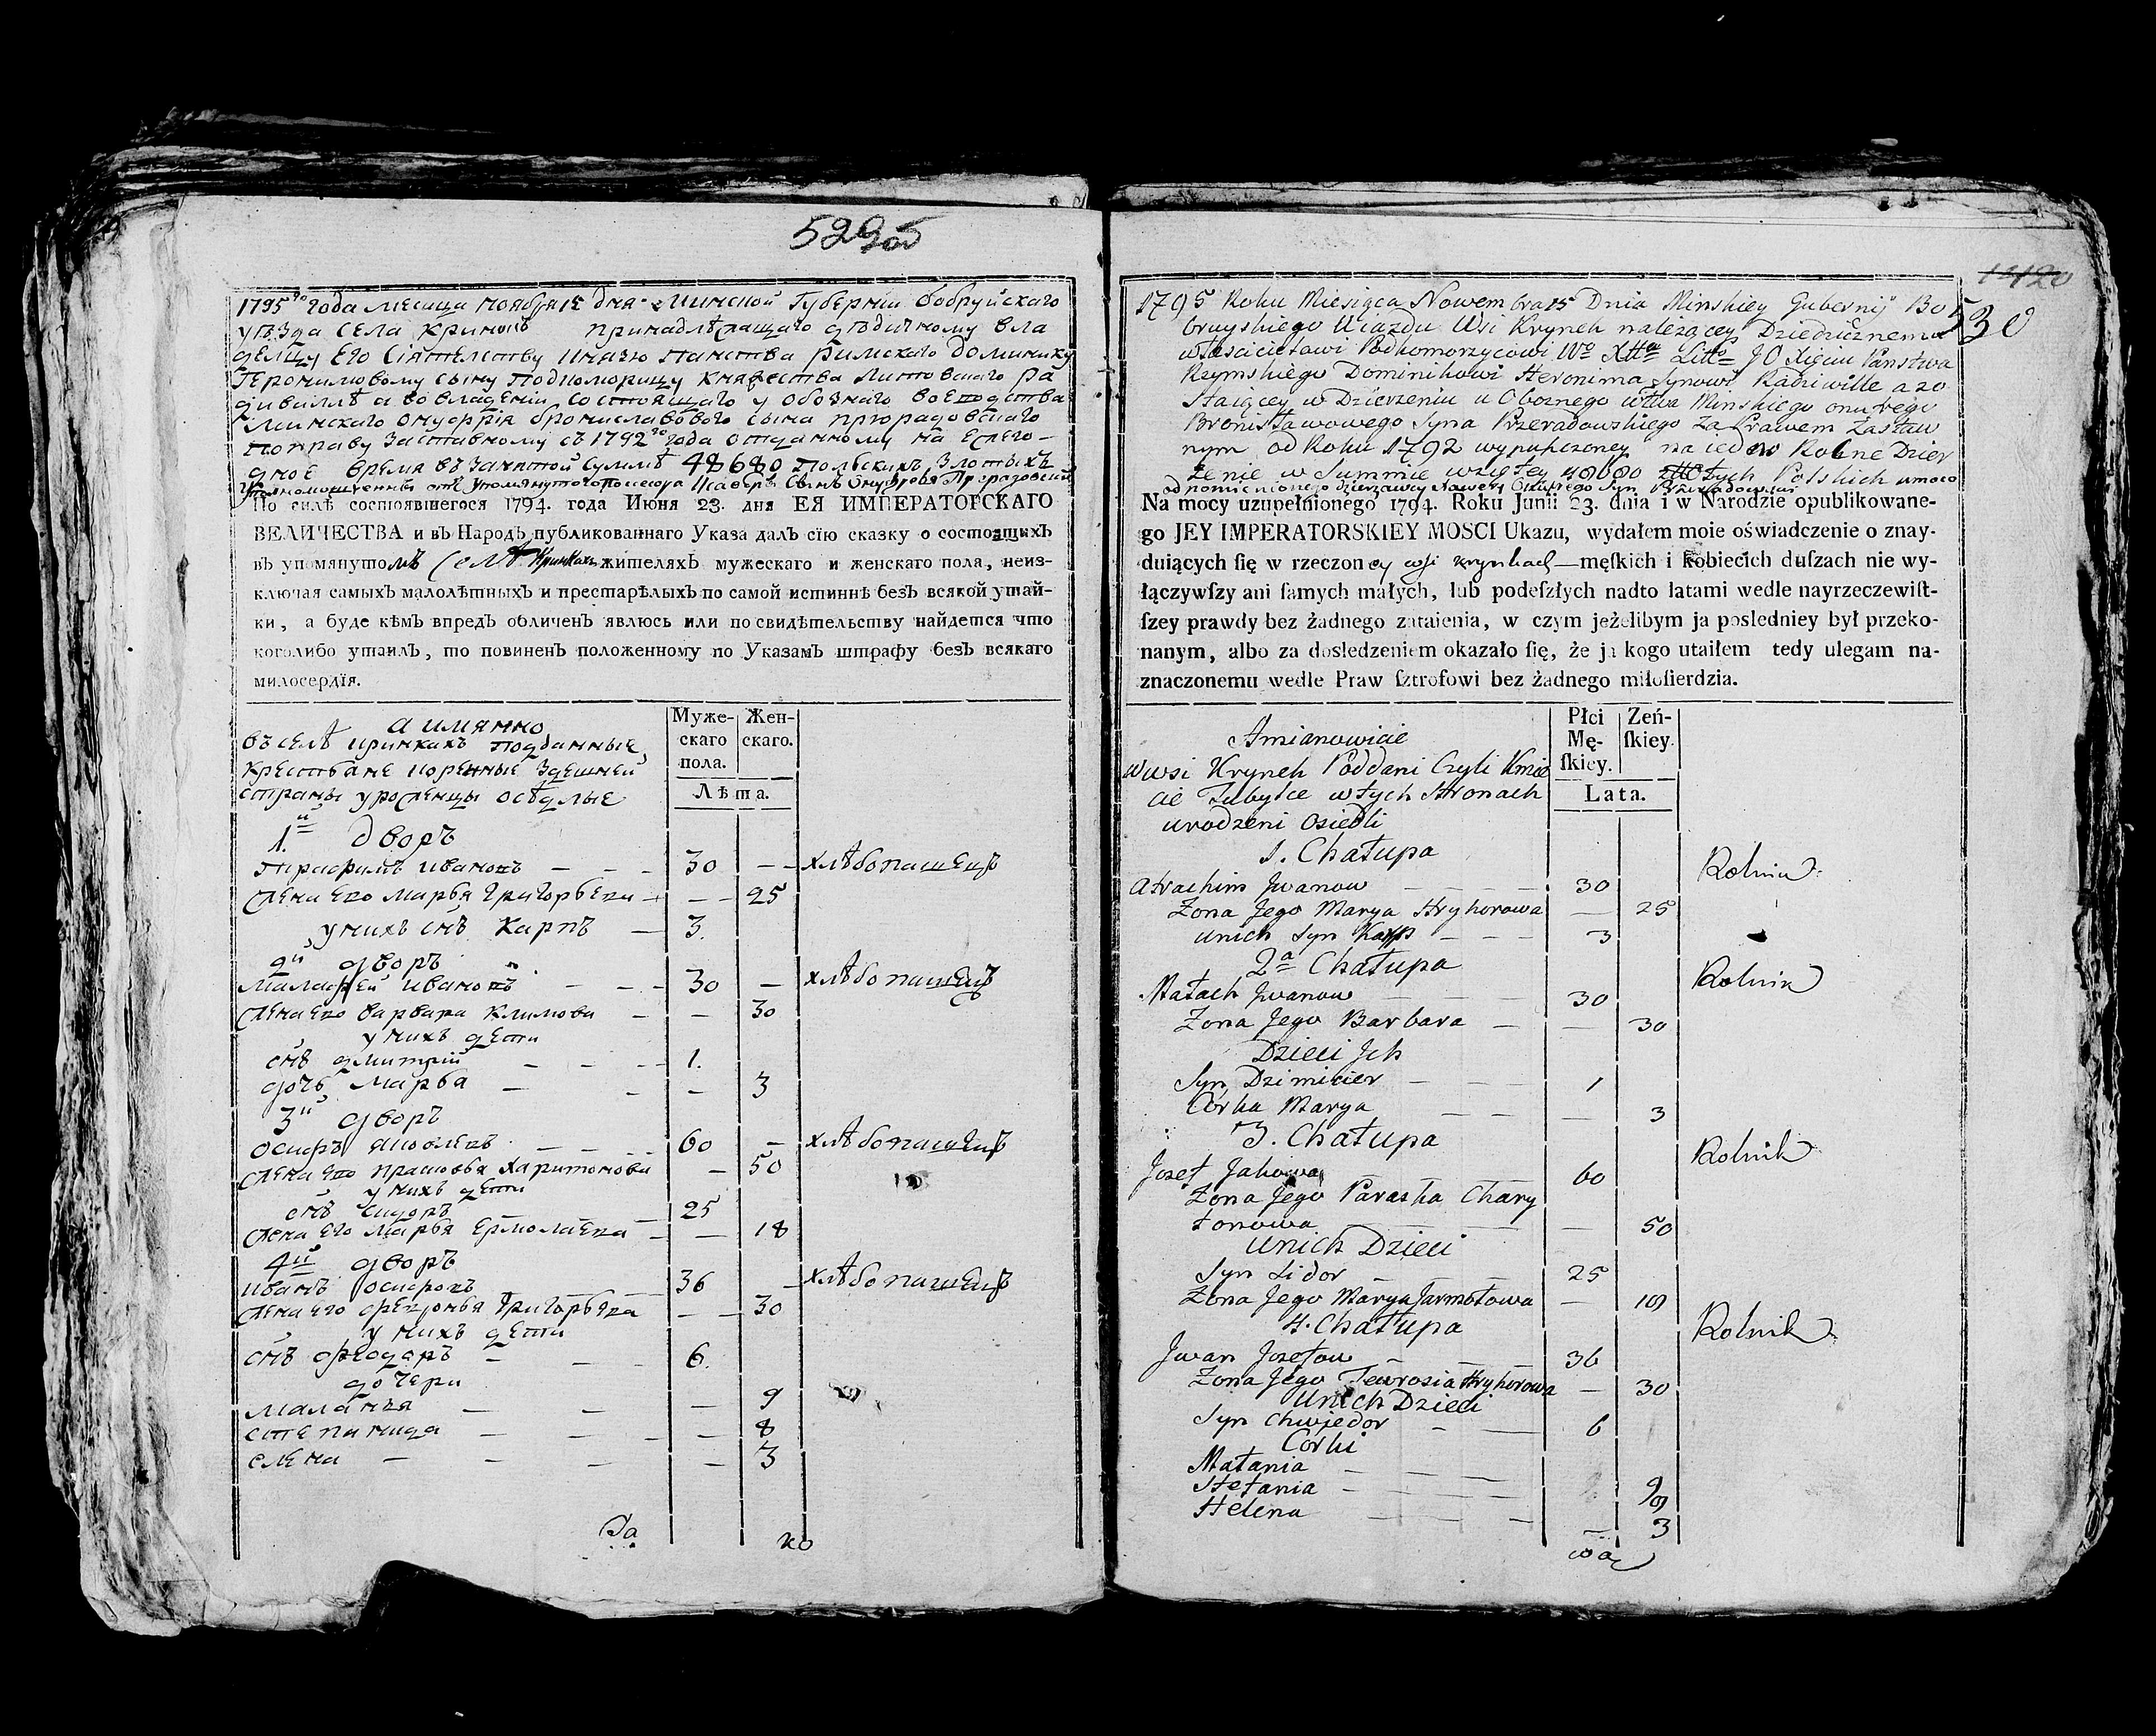 529об
1795го года месяца ноября 15 дня Минской Губерніи бобруйскаго
уѣзда села Кринокъ принадлѣжащаго дѣдичному вла
дѣлцу Его Сіятелству Князю панства римскаго доминику
Геронимовому сыну подкоморищу княжества литовскаго Ра
дивиллѣ а во владеніи состоящаго у обознаго воеводства
Минскаго онуфрія брониславового сына прзрадовскаго
поправу заставному съ 1792го года отданному на
дное время въ занятой суммѣ 48680 польскихъ Злотыхъ
По силѣ состоявшегося 1794. года Июня 23. дня ЕЯ ИМПЕРАТОРСКАГО
ВЕЛИЧЕСТВА и въ Народъ публикованнаго Указа далъ сїю сказку о состоящихъ
въ упомянутомъ Селѣ Кринкахъ жителяхЬ мужескаго и женскаго пола, неиз-
ключая самыхъ малолѣтныхъ и престарѣлыхъ по самой истиннѣ безъ всякой утай-
ки, а буде кѣмЪ впредъ обличенЪ явлюсь или по свидѣтельству найдется что
коголибо утаилЪ, то повиненЪ положенному по УказамЪ штрафу безъ всякаго
милосердїя.
а имянно
въ селѣ кринкахъ подданные
крестьяне коренные здешней
страны уроженцы осѣдлые
Муже-
скаго
пола.
Жен-
скаго.
Лѣта.
1.й дворъ
Трафимъ Ивановъ — — 30 — — хлѣбопашецъ
жена его Марья Григорьева — — 25
у нихъ снъ Карпъ — 3.
2й дворъ
Малафей Ивановъ — — 30 — хлѣбопашецъ
жена его Варвара Климова — — 30
у нихъ дети
снъ дмитрій — — 1.
дочь Марья — — — 3
3й дворъ
осифъ яковлевъ — — 60 — хлѣбопашецъ
жена его прасковья Харитонова — 50
у нихъ дети
снъ сидоръ — — 25
жена его Марья Ермолаева — — 18
4й дворъ
иванъ осифовъ 36 — хлѣбопашецъ
жена его Григорьева — — 30
у нихъ дети
снъ федоръ — — — 6.
дочери
маланья — — — 9
степанида — — — — 8
елена — — — — 3
За
ко
1420
530
1795 Roku Miesiąca Nowembra 15 Dnia Minskiey Gubernij Bo
bruyskiego Ujazdu Wsi Krynek należącey Dziedzicznemu
właścicielowi Podkomorzycowi Wo Xttа Litto J O Xięciu Państwa
Rzymskiego Dominikowi Heronima Synowi Radziwille a zo
staiącey w Dzierżeniu u Oboznego wtwa Minskiego onufrego
Bronisławowego Syna Przeradowskiego Za Prawem Zastaw
nym od Roku 1792 wypuszczoney na iedno Rocne Dzier
żenie w Summie wziętey 48680 Złotych Polskich umoco
Na mocy uzupełnionego 1794. Roku Junii 23. dnia i w Narodzie opublikowane-
go JEY IMPERATORSKIEY MOSCI Ukazu, wydałem moie oświadczenie o znay-
duiących ſię w rzeczoney wsi Krynkach—męſkich i kobiecich duſzach nie wy-
łączywſzy ani ſamych małych, lub podeſzłych nadto latami wedle nayrzeczewiſt-
ſzey prawdy bez żadnego zataienia, w czym jeżelibym ja posledniey był przeko-
nanym, albo za dosledzeniem okazało ſię, że ja kogo utaiłem tedy ulegam na-
znaczonemu wedle Praw ſztrofowi bez żadnego miłoſierdzia.
Amianowicie
w wsi Krynek Poddani Czyli Kmie
cie Tubylce w tych Stronach
urodzeni Osiedli
Płci
Mę-
ſkiey.
Zeń-
ſkiey.
Lata.
1. Chałupa
Atrachim Jwanow — — — 30 Rolnik
Zona Jego Marya Hryhorowa — 25
unich Syn Karp — — — 3
2a Chałupa
Małach Jwanow — — 30 Rolnik
Zona Jego Barbara — — 30
Dzieci Jch
Syn Dzimicier — — — 1
Córka Marya — — — 3
3. Chałupa
Jozef Jakowa — — 60 Rolnik
Zona Jego Paraska Chary
tonowa — — — 50
Unich Dzieci
Syn Sidor — — 25
Zona Jego Marya Jarmołowa — 18
4. Chałupa
Jwan Jozefow — — 36 Rolnik
Zona Jego Hryhorowa — 30
Unich Dzieci
Syn Chwiedor — — 6
Córki
Małania — — — 9
Stefania — — — 8
Helena — — — 3